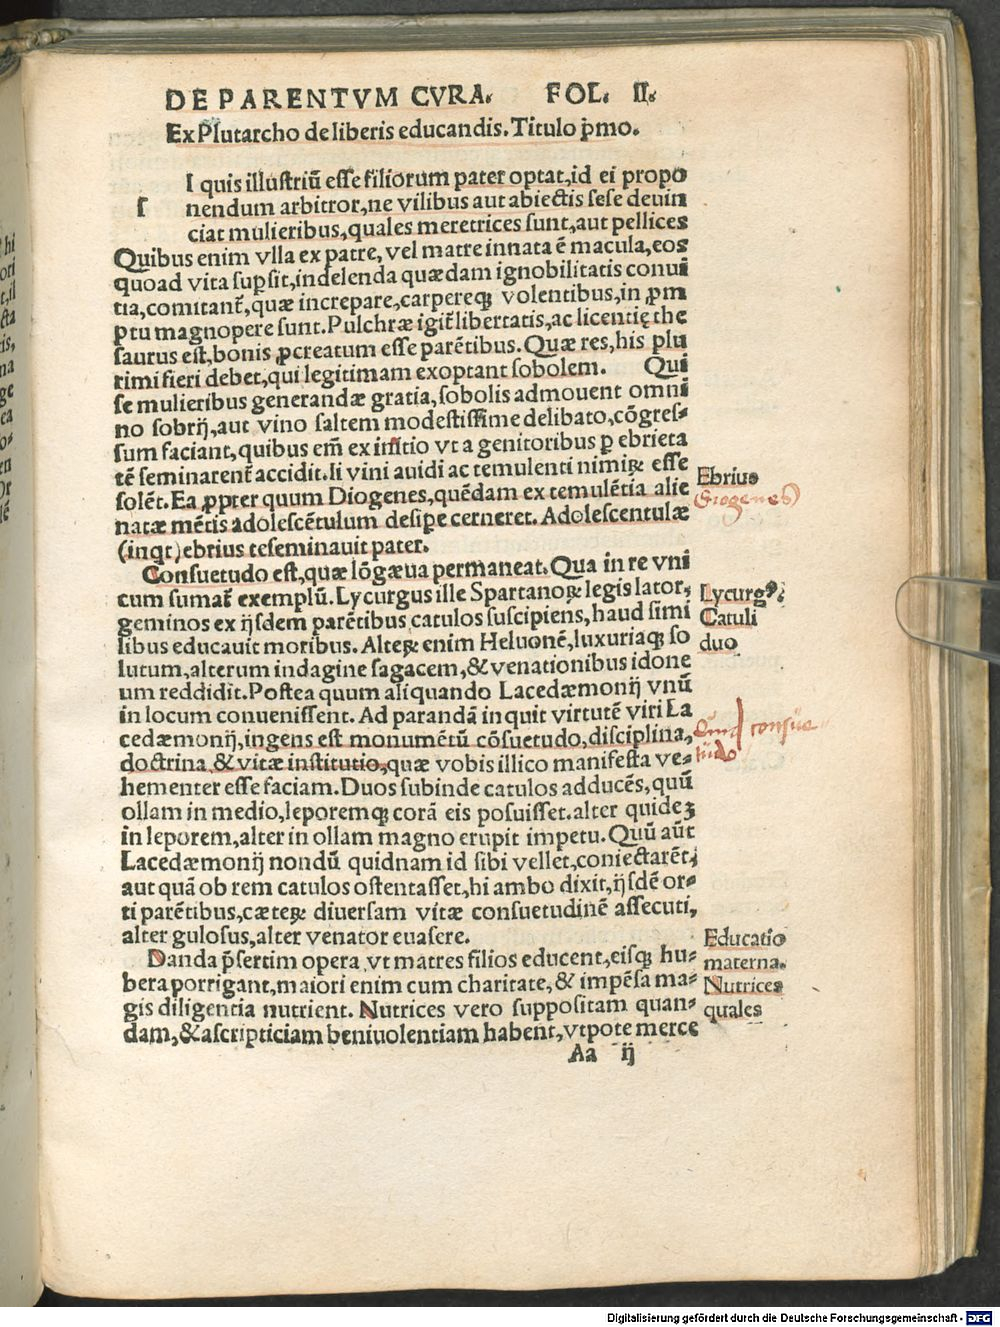 DE PARENTVM CVRA. FOL. II.
Ex Plutarcho de liberis educandis. Titulo p̄mo.
I quis illustriū esse filiorum pater optat, id ei propo
ſ nendum arbitror, ne vilibus aut abiectis sese deuin
ciat mulieribus, quales meretrices sunt, aut pellices
Quibus enim vlla ex patre, vel matre innata ē macula, eos
quoad vita sup̱sit, indelenda quædam ignobilitatis conui
tia, comitant᷑, quæ increpare, carpereq; volentibus, in ꝓm
ptu magnopere sunt. Pulchræ igit᷑ libertatis, ac licentię the
saurus est, bonis ꝓcreatum esse parētibus. Quæ res, his plu
rimi fieri debet, qui legitimam exoptant sobolem. Qui
se mulieribus generandæ gratia, sobolis admouent omni
no sobrij, aut vino saltem modestissime delibato, cōgres⸗
sum faciant, quibus em̄ ex initio vt a genitoribus p̱ ebrieta
tē seminarent᷑ accidit. Ii vini auidi ac temulenti nimiꝝ esse
solēt. Ea ꝓpter quum Diogenes, quēdam ex temulētia alie
natæ mētis adolescētulum desip̱e cerneret. Adolescentulæ
(inqt) ebrius te seminauit pater.
Consuetudo est, quæ lōgæua permaneat. Qua in re vni
cum sumat᷑ exemplū. Lycurgus ille Spartanoꝝ legis lator,
geminos ex ijsdem parētibus catulos suscipiens, haud simi
libus educauit moribus. Alteꝝ enim Heluonē, luxuriaq; so
lutum, alterum indagine sagacem, & venationibus idone
um reddidit. Postea quum aliquando Lacedæmonij vnū
in locum conuenissent. Ad parandā inquit virtutē viri La
cedæmonij, ingens est monumētū cōsuetudo, disciplina,
doctrina & vitæ institutio, quæ vobis illico manifesta ve⸗
hementer esse faciam. Duos subinde catulos adducēs, quū
ollam in medio, leporemq; corā eis posuisset. alter quideꝫ
in leporem, alter in ollam magno erupit impetu. Quū aūt
Lacedæmonij nondū quidnam id sibi vellet, coniectarēt,
aut quā ob rem catulos ostentasset, hi ambo dixit, ijsdē or⸗
ti parētibus, cæteꝝ diuersam vitæ consuetudinē assecuti,
alter gulosus, alter venator euasere.
Danda p̄sertim opera, vt matres filios educent, eisq; hu⸗
bera porrigant, maiori enim cum charitate, & impēsa ma⸗
gis diligentia nutrient. Nutrices vero suppositam quan⸗
dam, & ascripticiam beniuolentiam habent, vtpote merce
Aa ij
Ebrius
Diogenes
Lycurgꝰ.
Catuli
duo
Educatio
materna.
Nutrices
quales
Digitalisierung gefördert durch die Deutsche Forschungsgemeinschaft - DFG